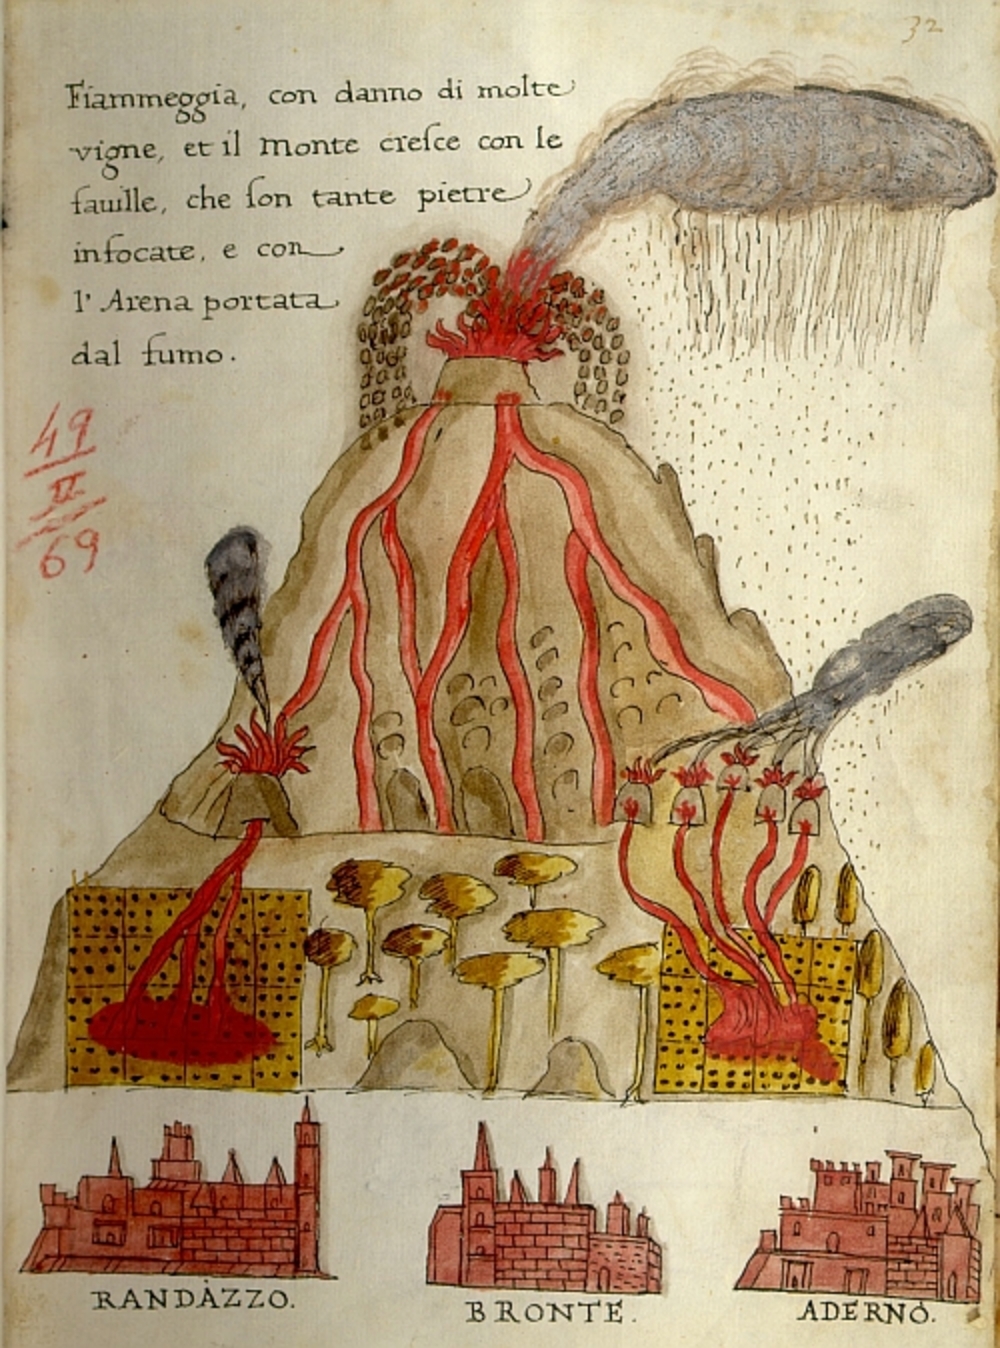 32
Fiammeggia, con danno di molte
vigne, et il Monte creſce con le
fauille, che ſon tante pietre
infocate, e con
l' Arena portata
dal fumo.
49
II
69
RANDÀZZO.
BRONTE.
ADERNÒ.